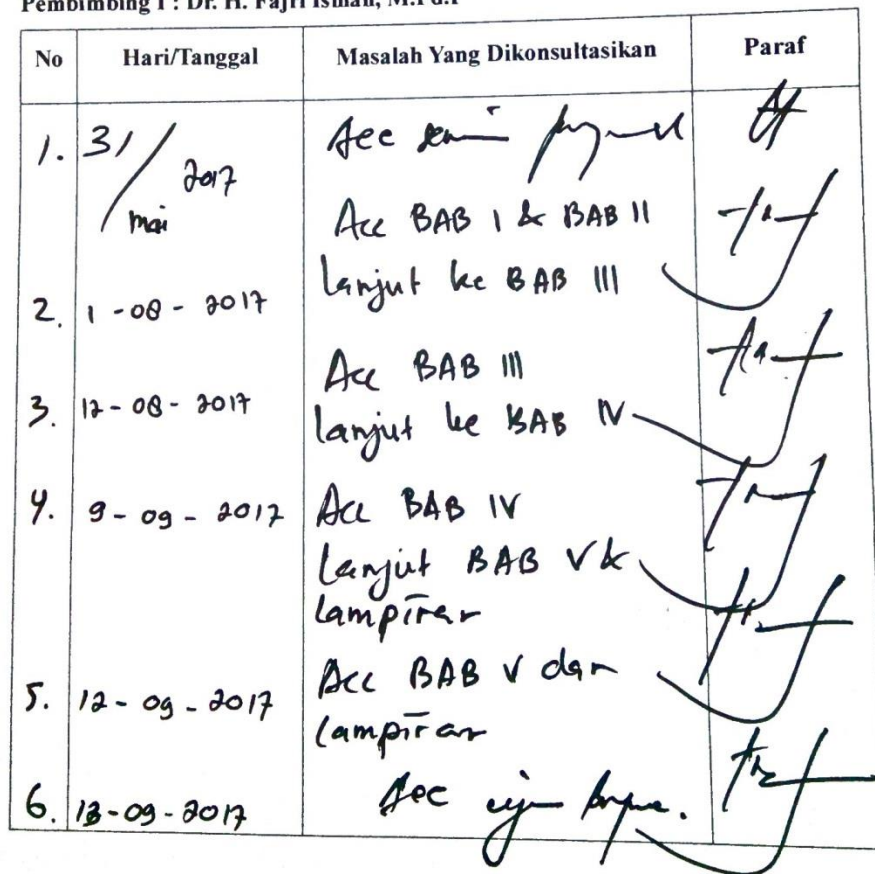 Pembimbing I : Dr. H. Fajri Ismail, M.Pd.I
No Hari/Tanggal Masalah Yang Dikonsultasikan Paraf
1. 31/mai 2017 Acc
Acc BAB I & BAB II
lanjut ke BAB III
2. 1-08-2017
Acc BAB III
3. 12-08-2017 lanjut ke BAB IV
4. 9-09-2017 Acc BAB IV
lanjut BAB V &
lampiran
5. 12-09-2017 Acc BAB V dan
lampiran
6. 13-09-2017 Acc